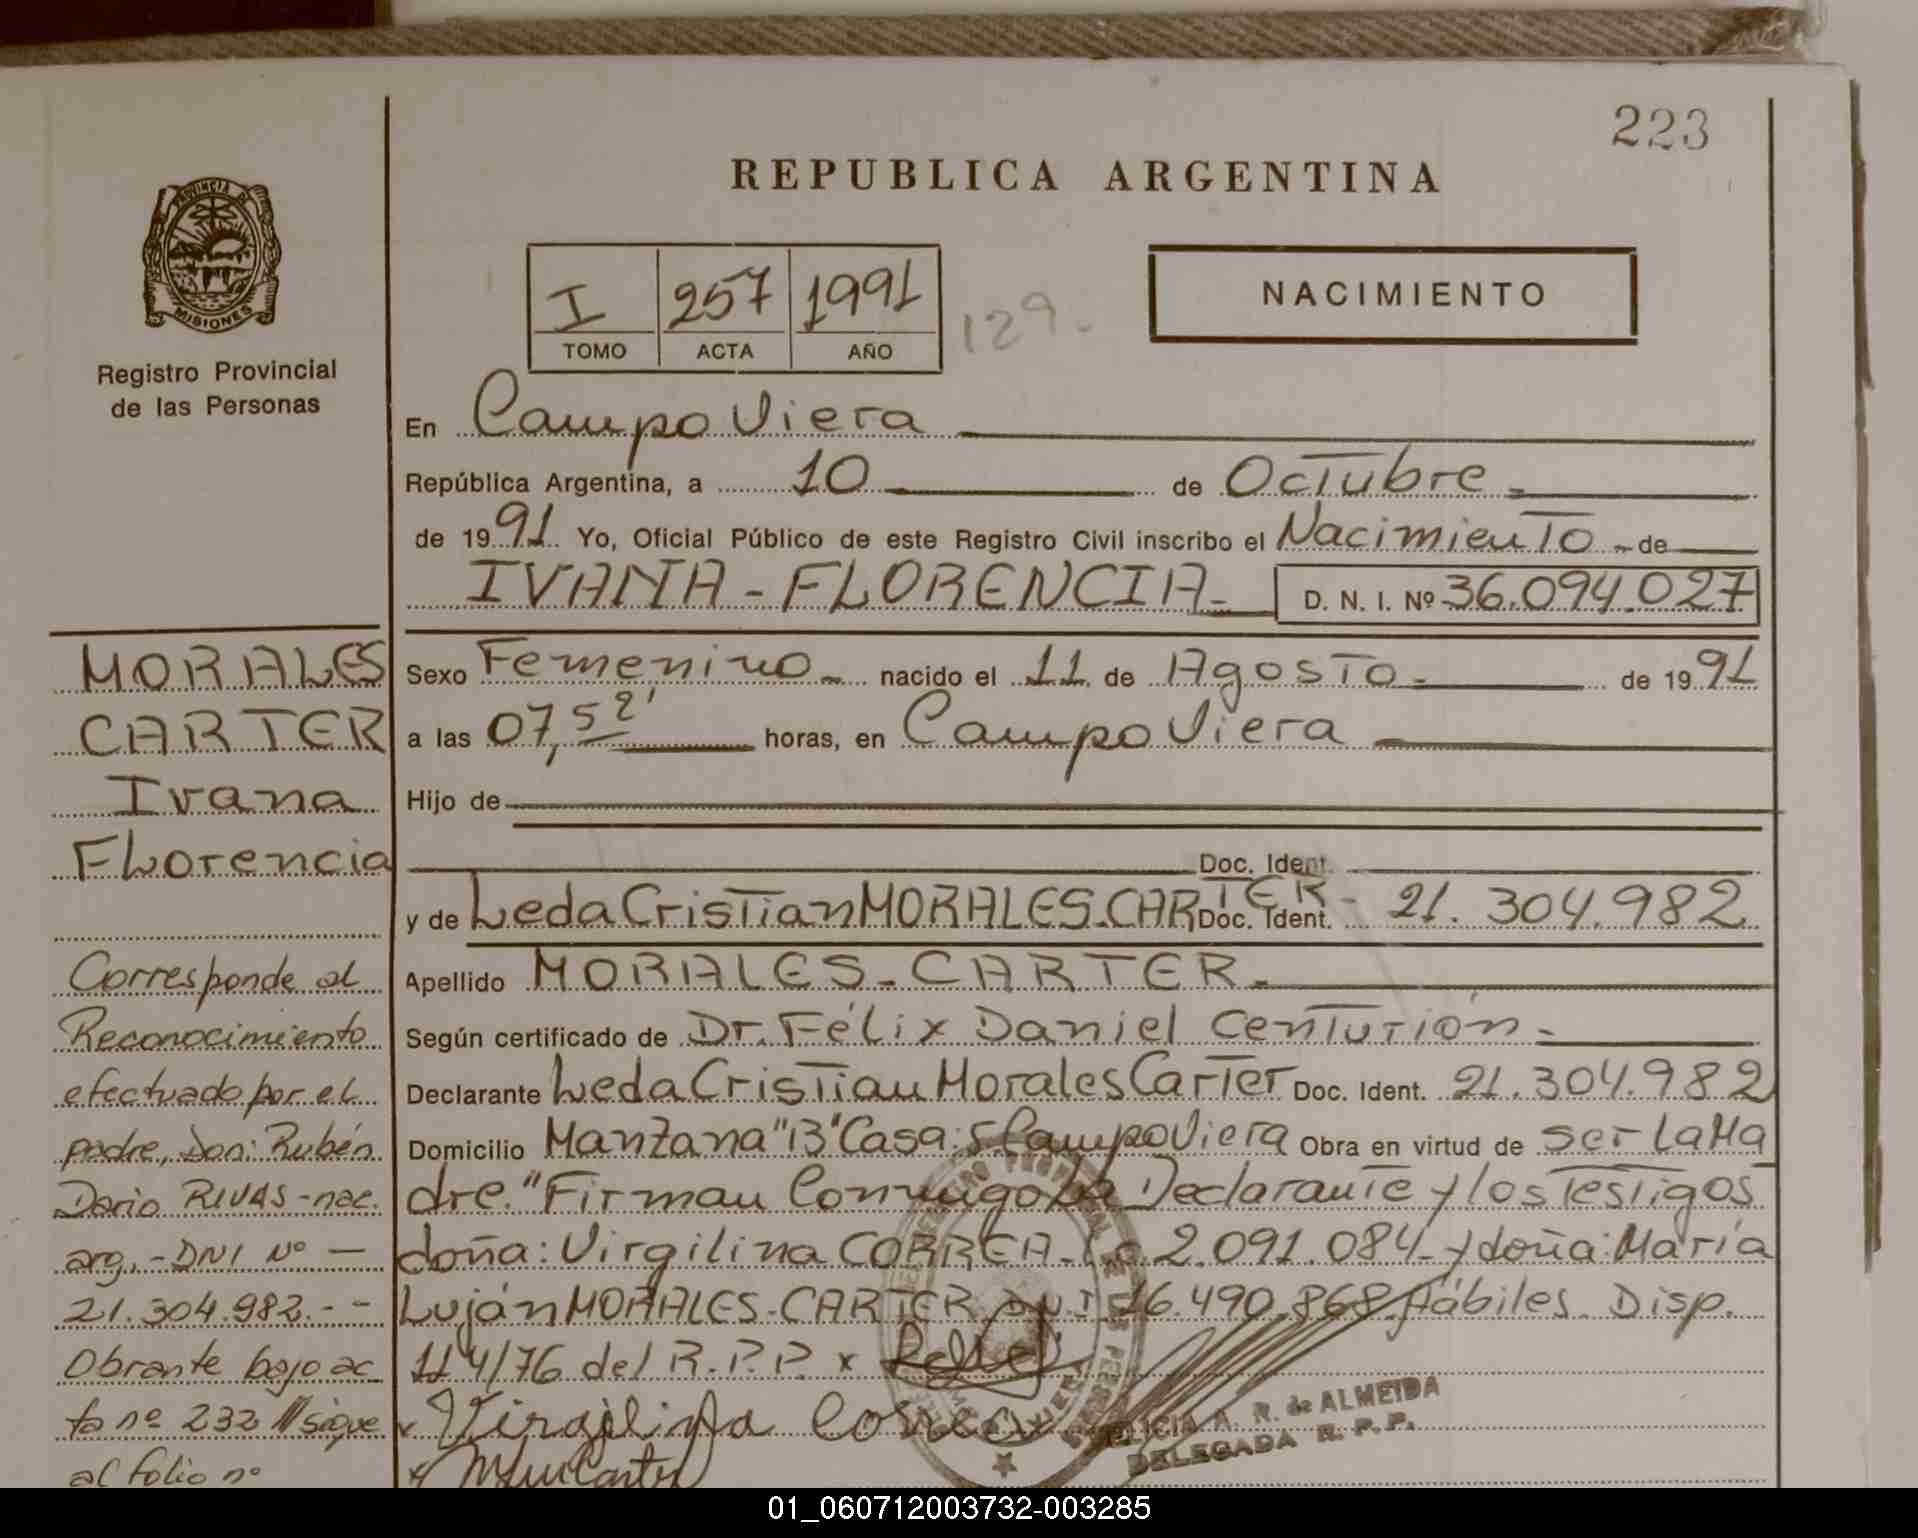 223
REPUBLICA ARGENTINA
PROVINCIA DE
MISIONES
Registro Provincial
de las Personas
I 257 1991
TOMO ACTA AÑO
129.
NACIMIENTO
En Campo Viera
República Argentina, a 10 de Octubre
de 1991 Yo, Oficial Público de este Registro Civil inscribo el Nacimiento de
IVANA - FLORENCIA - D. N. I. Nº 36.094.027
Sexo Femenino nacido el 11 de Agosto de 1991
a las 07,52' horas, en Campo Viera
Hijo de
Doc. Ident.
y de Leda Cristian MORALES-CARTER - Doc. Ident. 21.304.982
Apellido MORALES-CARTER.
Según certificado de Dr. Félix Daniel Centurión.
Declarante Leda Cristian Morales Carter Doc. Ident. 21.304.982
Domicilio Manzana "13" Casa: 5 Campo Viera Obra en virtud de ser la Ma
dre." Firman Conmigo La Declarante y los Testigos
doña: Virgilina CORREA - 2.091.084 y doña: María
Luján MORALES-CARTER D.N.I. 16.490.868 Hábiles. Disp.
114/76 del R.P.P. x
x Virgilina Correa
x
MORALES
CARTER
Ivana
Florencia
Corresponde al
Reconocimiento
efectuado por el
padre, Don: Rubén
Dario RIVAS - nac.
arg. - DNI Nº —
21.304.982.--
Obrante bajo ac
ta nº 232 // sigue
al folio nº
A. R. de ALMEIDA
DELEGADA R. P. P.
01_060712003732-003285